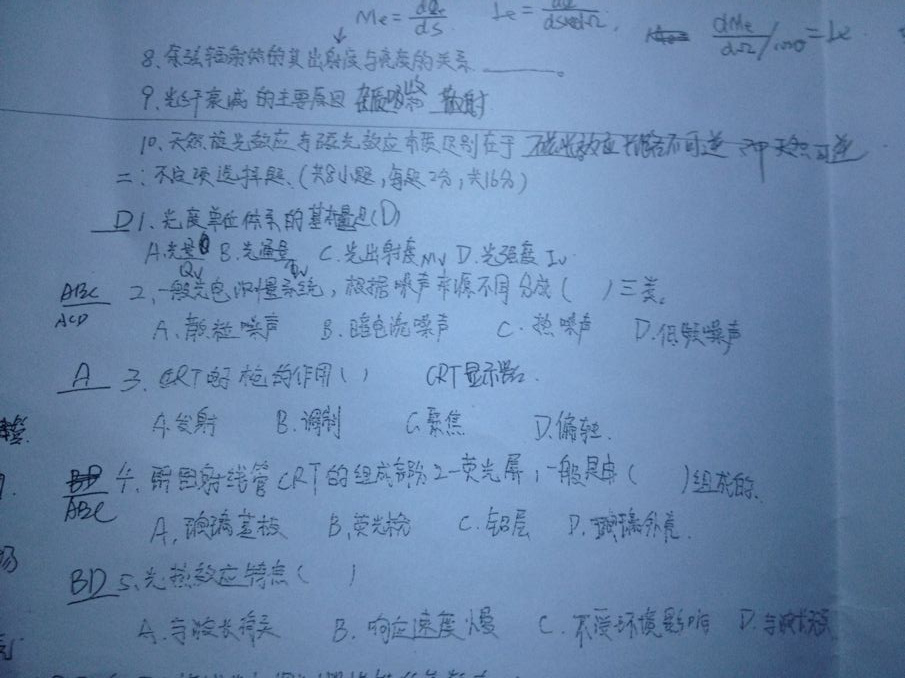 Me = dΦe/dS  Ie =    dMe/dΩ / cosθ = Le
8、余弦辐射体的其出射度与亮度的关系 ______。
9、光纤衰减的主要原因 杂质吸收和 散射
10、天然旋光效应与磁光效应本质区别在于 磁光效应 不可逆 天然可逆
二:不定项选择题、(共8小题,每题2分,共16分)
D 1、光度单位体系的基本量是(D)
A.光量 Qv B.光通量 Φv C.光出射度Mv D.光强度 Iv
ABC ACD 2、一般光电测量系统,根据噪声来源不同分成( )三类。
A、散粒噪声 B.暗电流噪声 C.热噪声 D.低频噪声
A 3.CRT电子枪的作用( ) CRT显示器.
A.发射 B.调制 C.聚焦 D.偏转.
ABC 4.阴极射线管CRT的组成部分之一荧光屏,一般是由( )组成的.
A,玻璃基板 B,荧光粉 C.铝层 D.玻璃外壳.
BD 5、光热效应特点( )
A.与波长有关 B.响应速度慢 C.不受环境影响 D.与波长无关